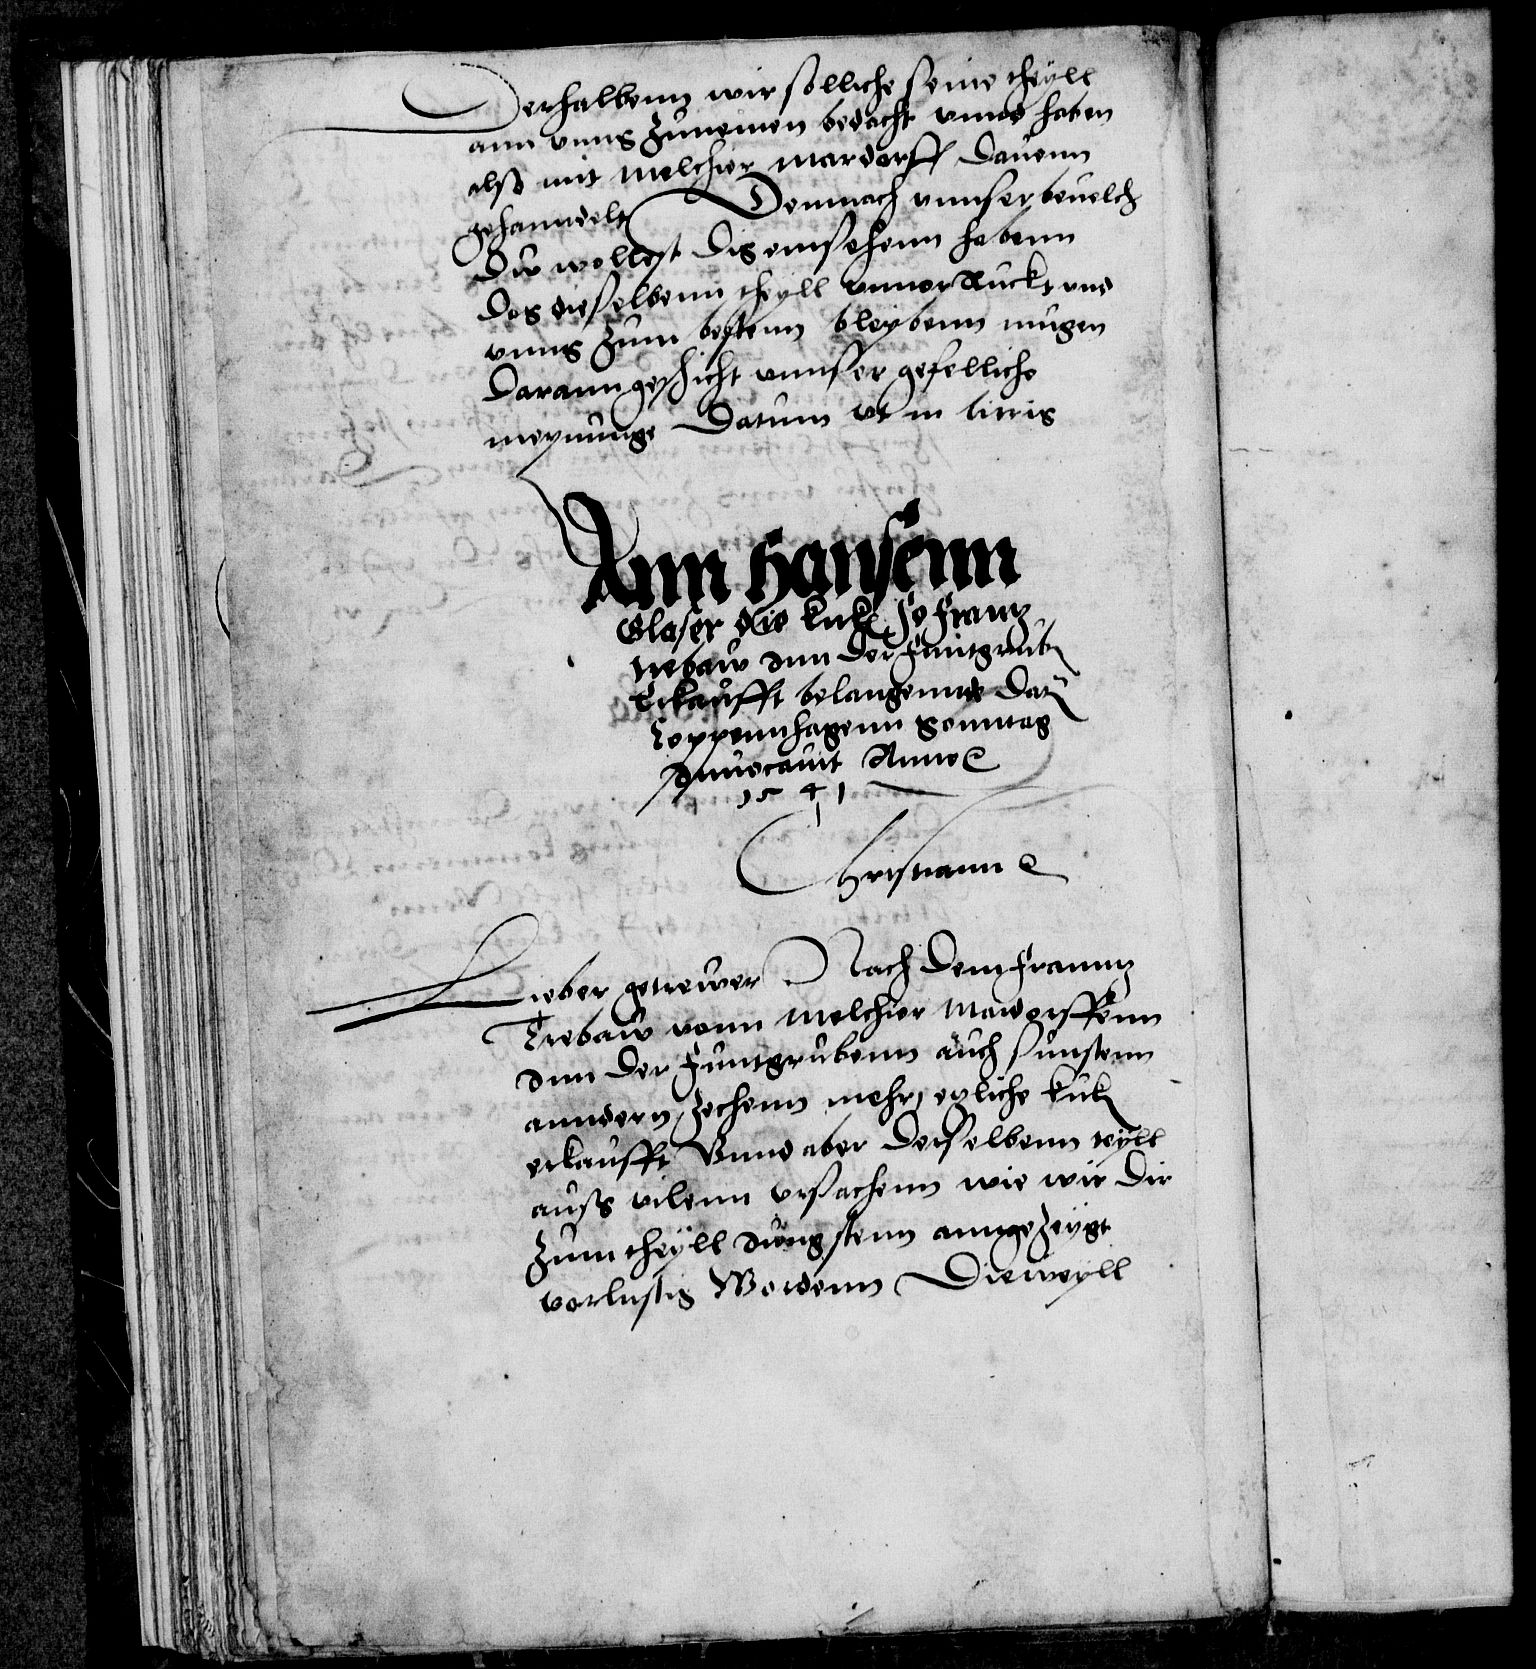 Derhalbenn wir solliche seine theyll
ann vnns zunemen bedacht vnnd haben
also mit Melchior Mardorff dauonn
gehanndelt Demnach vnnser beuelch
du wollest dis einsehenn habenn
das dieselbenn theyll vnuorruckt vnd
vnns zum bestenn bleybenn mugen
darann geschicht vnnser gefelliche
meynunge Datum vt in litris
Ann Hansenn
Glaser die kuk so Frantz
Trebaw Inn der Funtgrub
Erkaufft belangennde Dat
Coppennhagenn Sonntag
Innuocauit Anno
1541
Christiann
Lieber getrewer Nach dem Franntz
Trebaw vonn Melchior Mardorffenn
Inn der Funtgrubenn auch sunstenn
anndern zechenn mehr etzliche kuk
erkaufft Vnnd aber derselbenn teyll
auss vilenn vrsachenn wie wir dir
zum theyll Jungstenn anngezeygt
vorlustig Wordenn Dieweyll